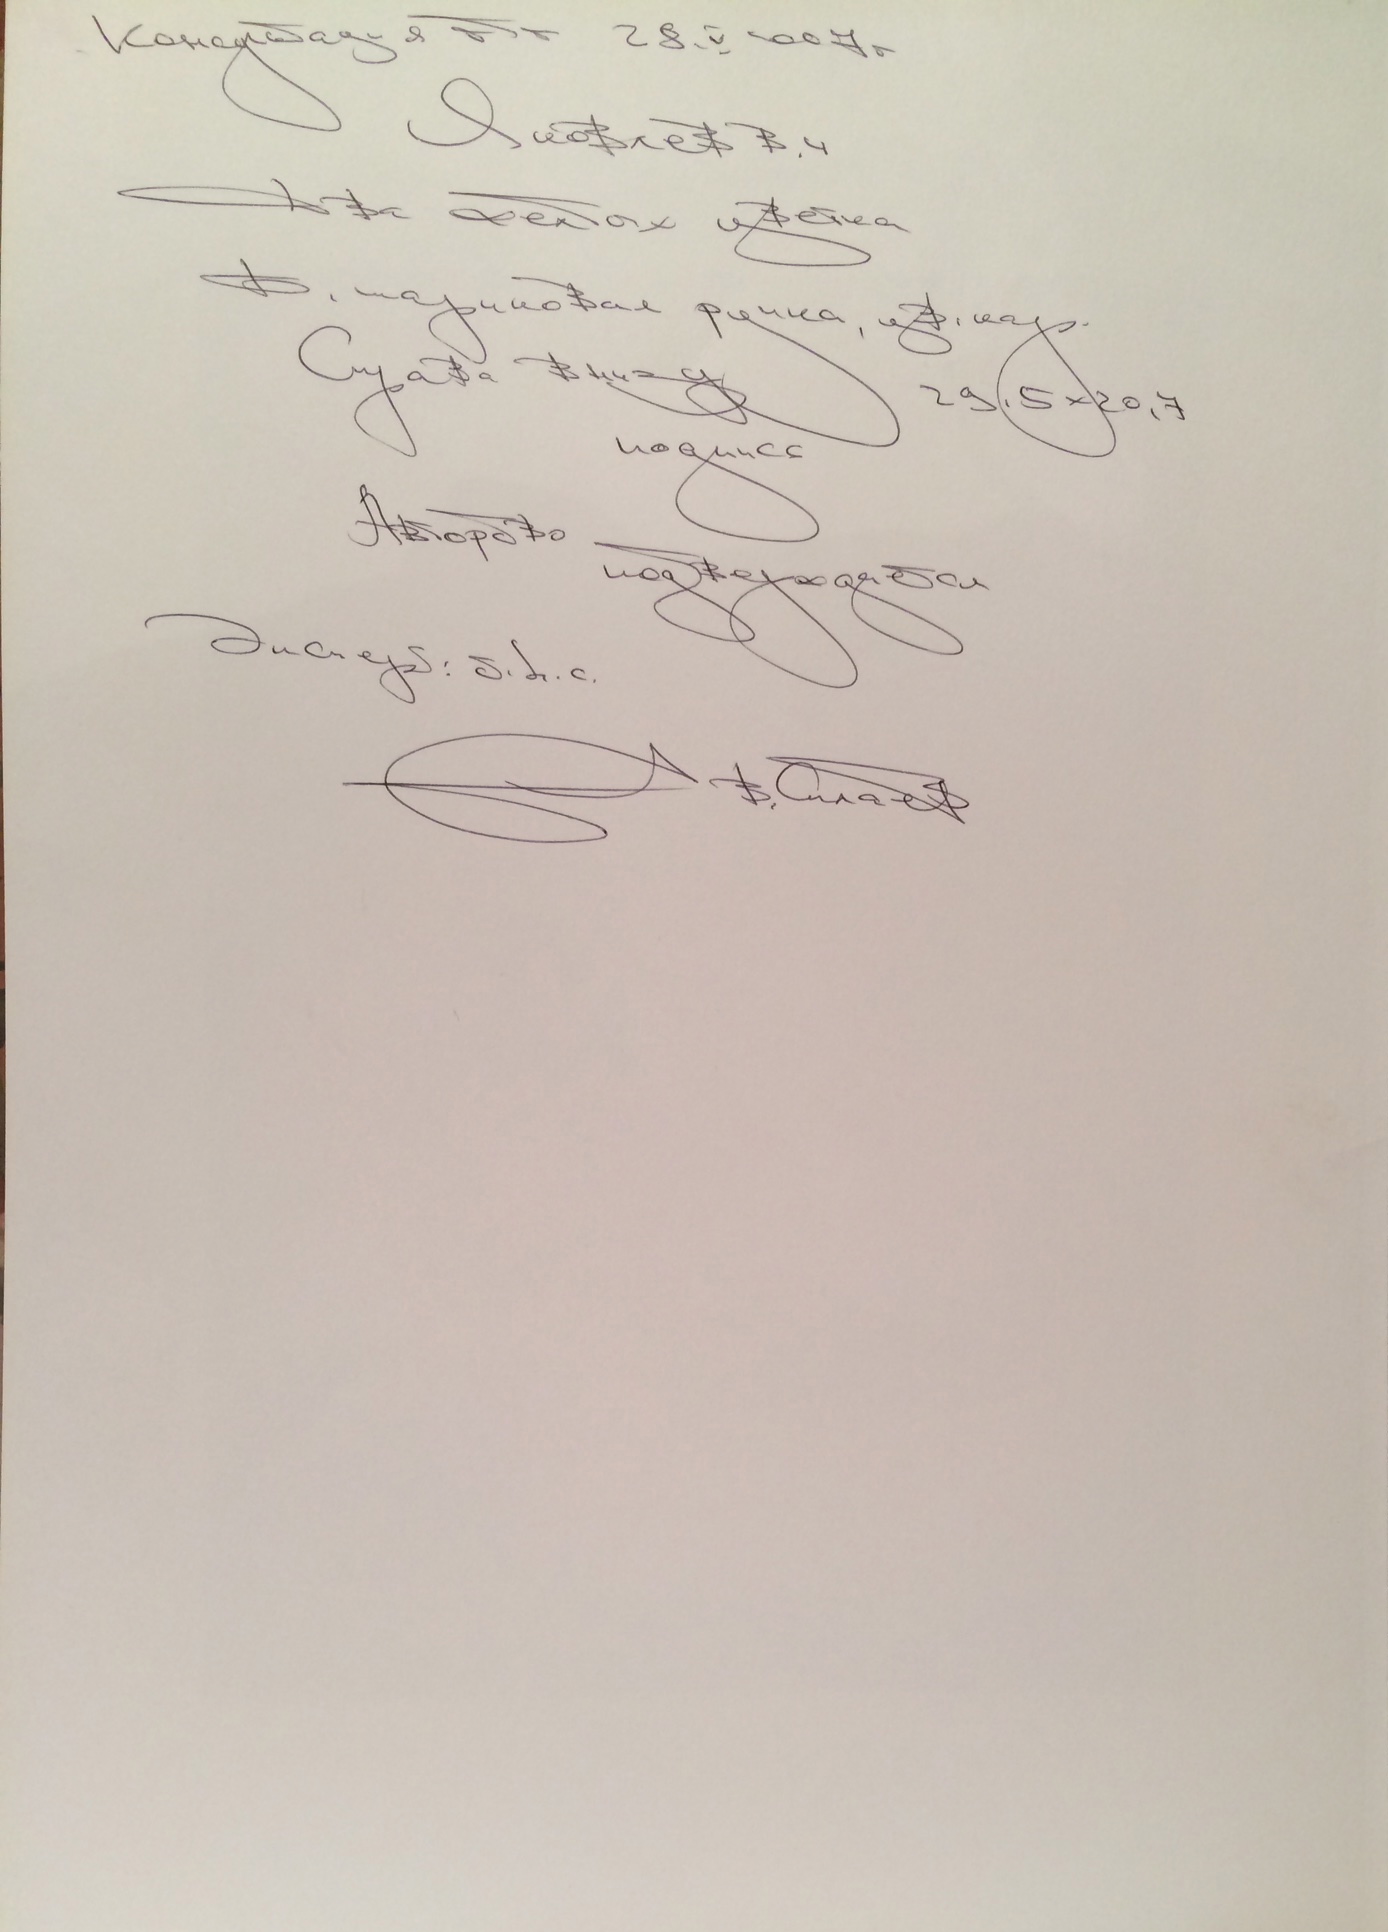 Консультация ГТГ 28.V 2007г
Яковлев В.Н
Два желтых цветка
Б. шариковая ручка, цв. кар.
Справа внизу 29,5×20,7
подпись
Авторство
подтверждается
Эксперт: с.н.с.
В. Силаев